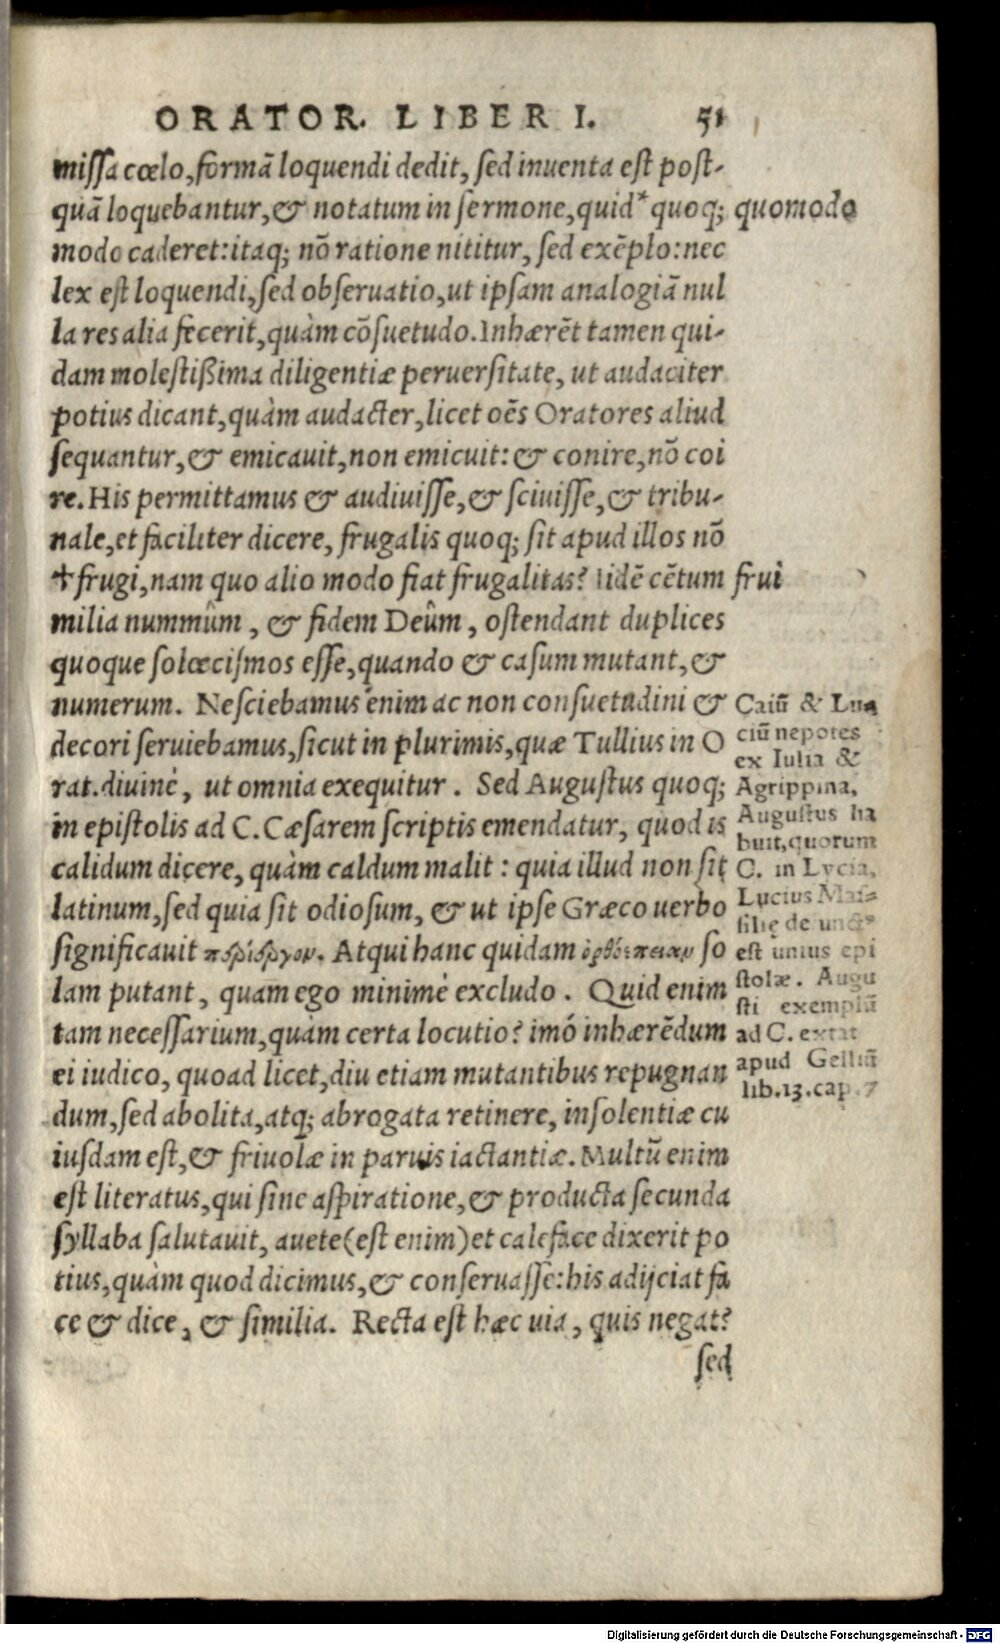 ORATOR. LIBER I. 51
missa cœlo, formā loquendi dedit, sed inuenta est post-
quā loquebantur, & notatum in sermone, quid* quoq; quomodo
modo caderet: itaq; nō ratione nititur, sed exēplo: nec
lex est loquendi, sed obseruatio, ut ipsam analogiā nul
la res alia fecerit, quàm cōsuetudo. Inhærēt tamen qui-
dam molestißima diligentiæ peruersitate, ut audaciter
potius dicant, quàm audacter, licet oēs Oratores aliud
sequantur, & emicauit, non emicuit: & conire, nō coi
re. His permittamus & audiuisse, & sciuisse, & tribu-
nale, et faciliter dicere, frugalis quoq; sit apud illos nō
✝frugi, nam quo alio modo fiat frugalitas? Iidē cētum frui
milia nummûm, & fidem Deûm, ostendant duplices
quoque solœcismos esse, quando & casum mutant, &
numerum. Nesciebamus enim ac non consuetudini &
decori seruiebamus, sicut in plurimis, quæ Tullius in O
rat. diuinè, ut omnia exequitur. Sed Augustus quoq;
in epistolis ad C. Cæsarem scriptis emendatur, quod is
calidum dicere, quàm caldum malit: quia illud non sit
latinum, sed quia sit odiosum, & ut ipse Græco uerbo
significauit περίεργον. Atqui hanc quidam ὀρθοέπειαν so
lam putant, quam ego minimè excludo. Quid enim
tam necessarium, quàm certa locutio? imó inhærēdum
ei iudico, quoad licet, diu etiam mutantibus repugnan
dum, sed abolita, atq; abrogata retinere, insolentiæ cu
iusdam est, & friuolæ in paruis iactantiæ. Multū enim
est literatus, qui sine aspiratione, & producta secunda
syllaba salutauit, auete (est enim) et calefacere dixerit po
tius, quàm quod dicimus, & conseruasse: his adijciat fa
ce & dice, & similia. Recta est hæc uia, quis negat?
sed
Caiū & Lu
ciū nepotes
ex Iulia &
Agrippina,
Augustus ha
buit, quorum
C. in Lycia,
Lucius Mas-
silię de
est unius epi
stolæ. Augu
sti exemplū
ad C. extat
apud Gelliū
lib. 13. cap. 7
Digitalisierung gefördert durch die Deutsche Forschungsgemeinschaft - DFG